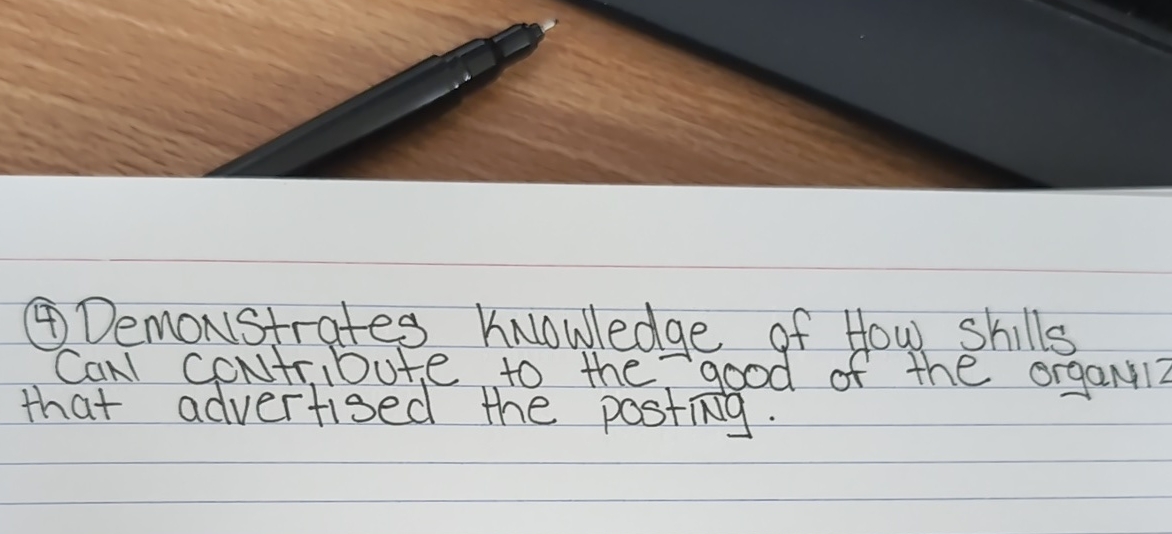 ④ Demonstrates knowledge of How skills
Can contribute to the good of the organiz
that advertised the posting.